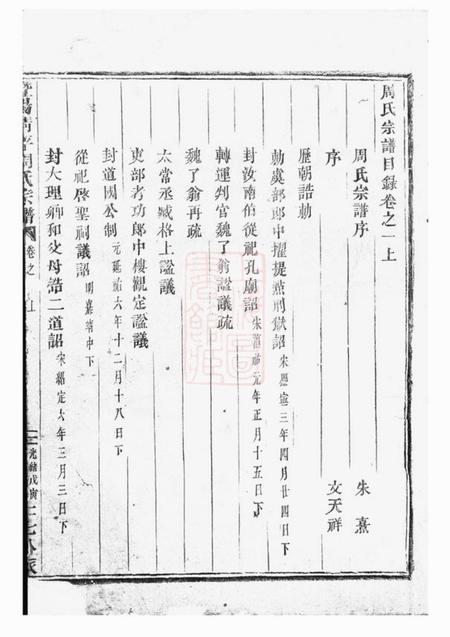 周氏宗譜目錄卷之一上
周氏宗譜序 朱熹
序 文天祥
歷朝誥勅
勅虞部郎中擢提㸃刑獄詔 宋熙寧三年四月廿四日下
封汝南伯從祀孔廟詔 宋淳祐元年正月十五日下
轉運判官魏了翁謚議疏
魏了翁再疏
太常丞臧格上謚議
吏部考功郎中樓觀定謚議
封道國公制 元延祐六年十二月十八日下
從祀啓聖祠議詔 明嘉靖中下
封大理卿和父母誥二道詔 宋紹定六年三月三日下
周氏宗譜 卷之一上
光緒戊寅